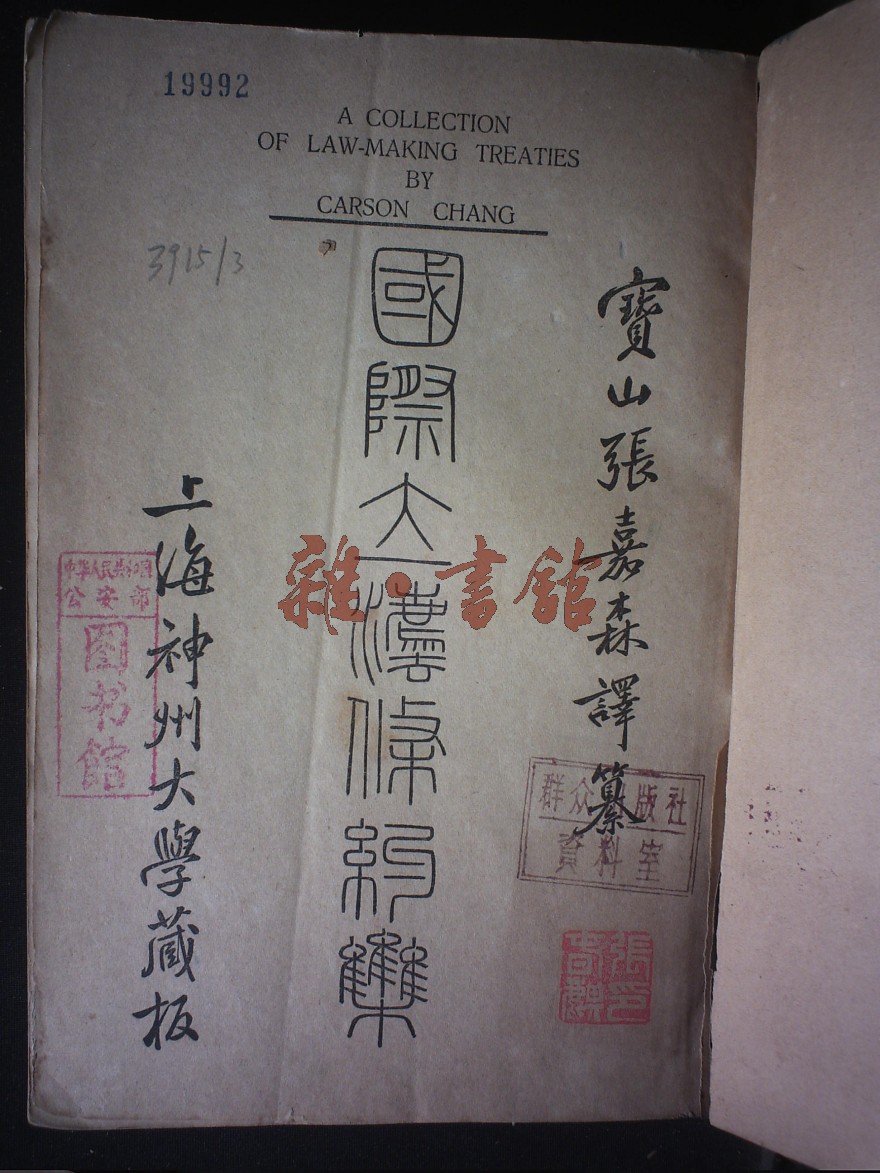 19992
A COLLECTION
OF LAW-MAKING TREATIES
BY
CARSON CHANG
3915/3
寶山張嘉森譯纂
國際立灋條約雧
上海神州大學藏板
雜·書館
中华人民共和国
公安部
图书馆
群众出版社
資料室